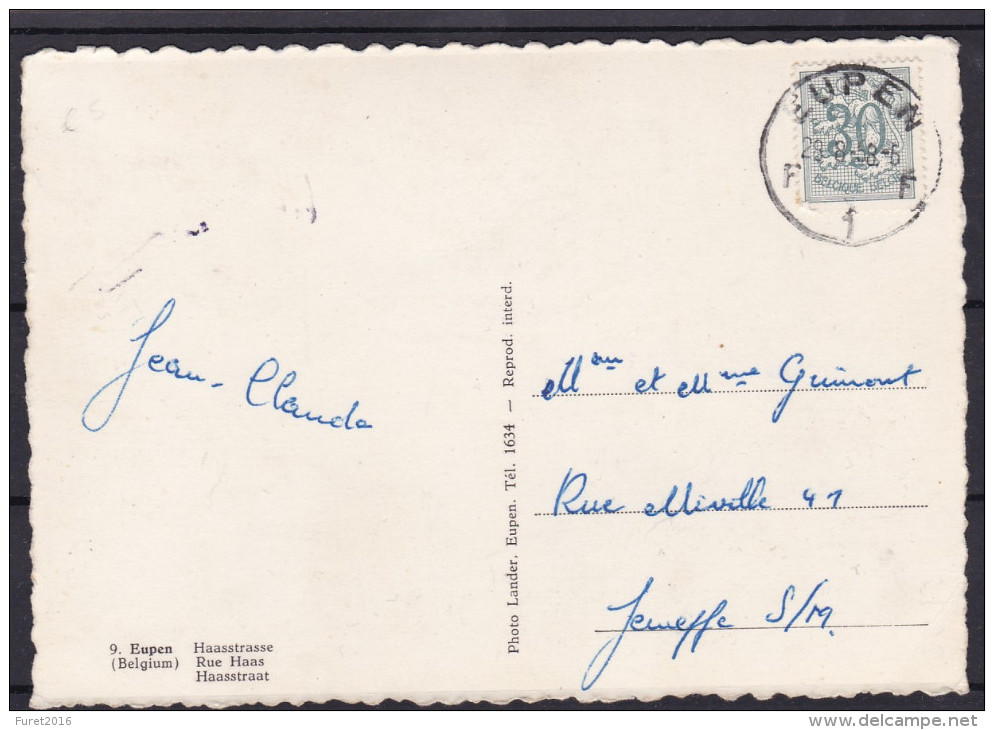 EUPEN
30
BELGIQUE BELGIE
F F
1
Jean-Claude
Mr et Mme Guimont
Rue Miville 41
Jeneffe S/M.
Photo Lander, Eupen. Tél. 1634 — Reprod. interd.
9. Eupen Haasstrasse
(Belgium) Rue Haas
Haasstraat
Furet2016
delcampe.net